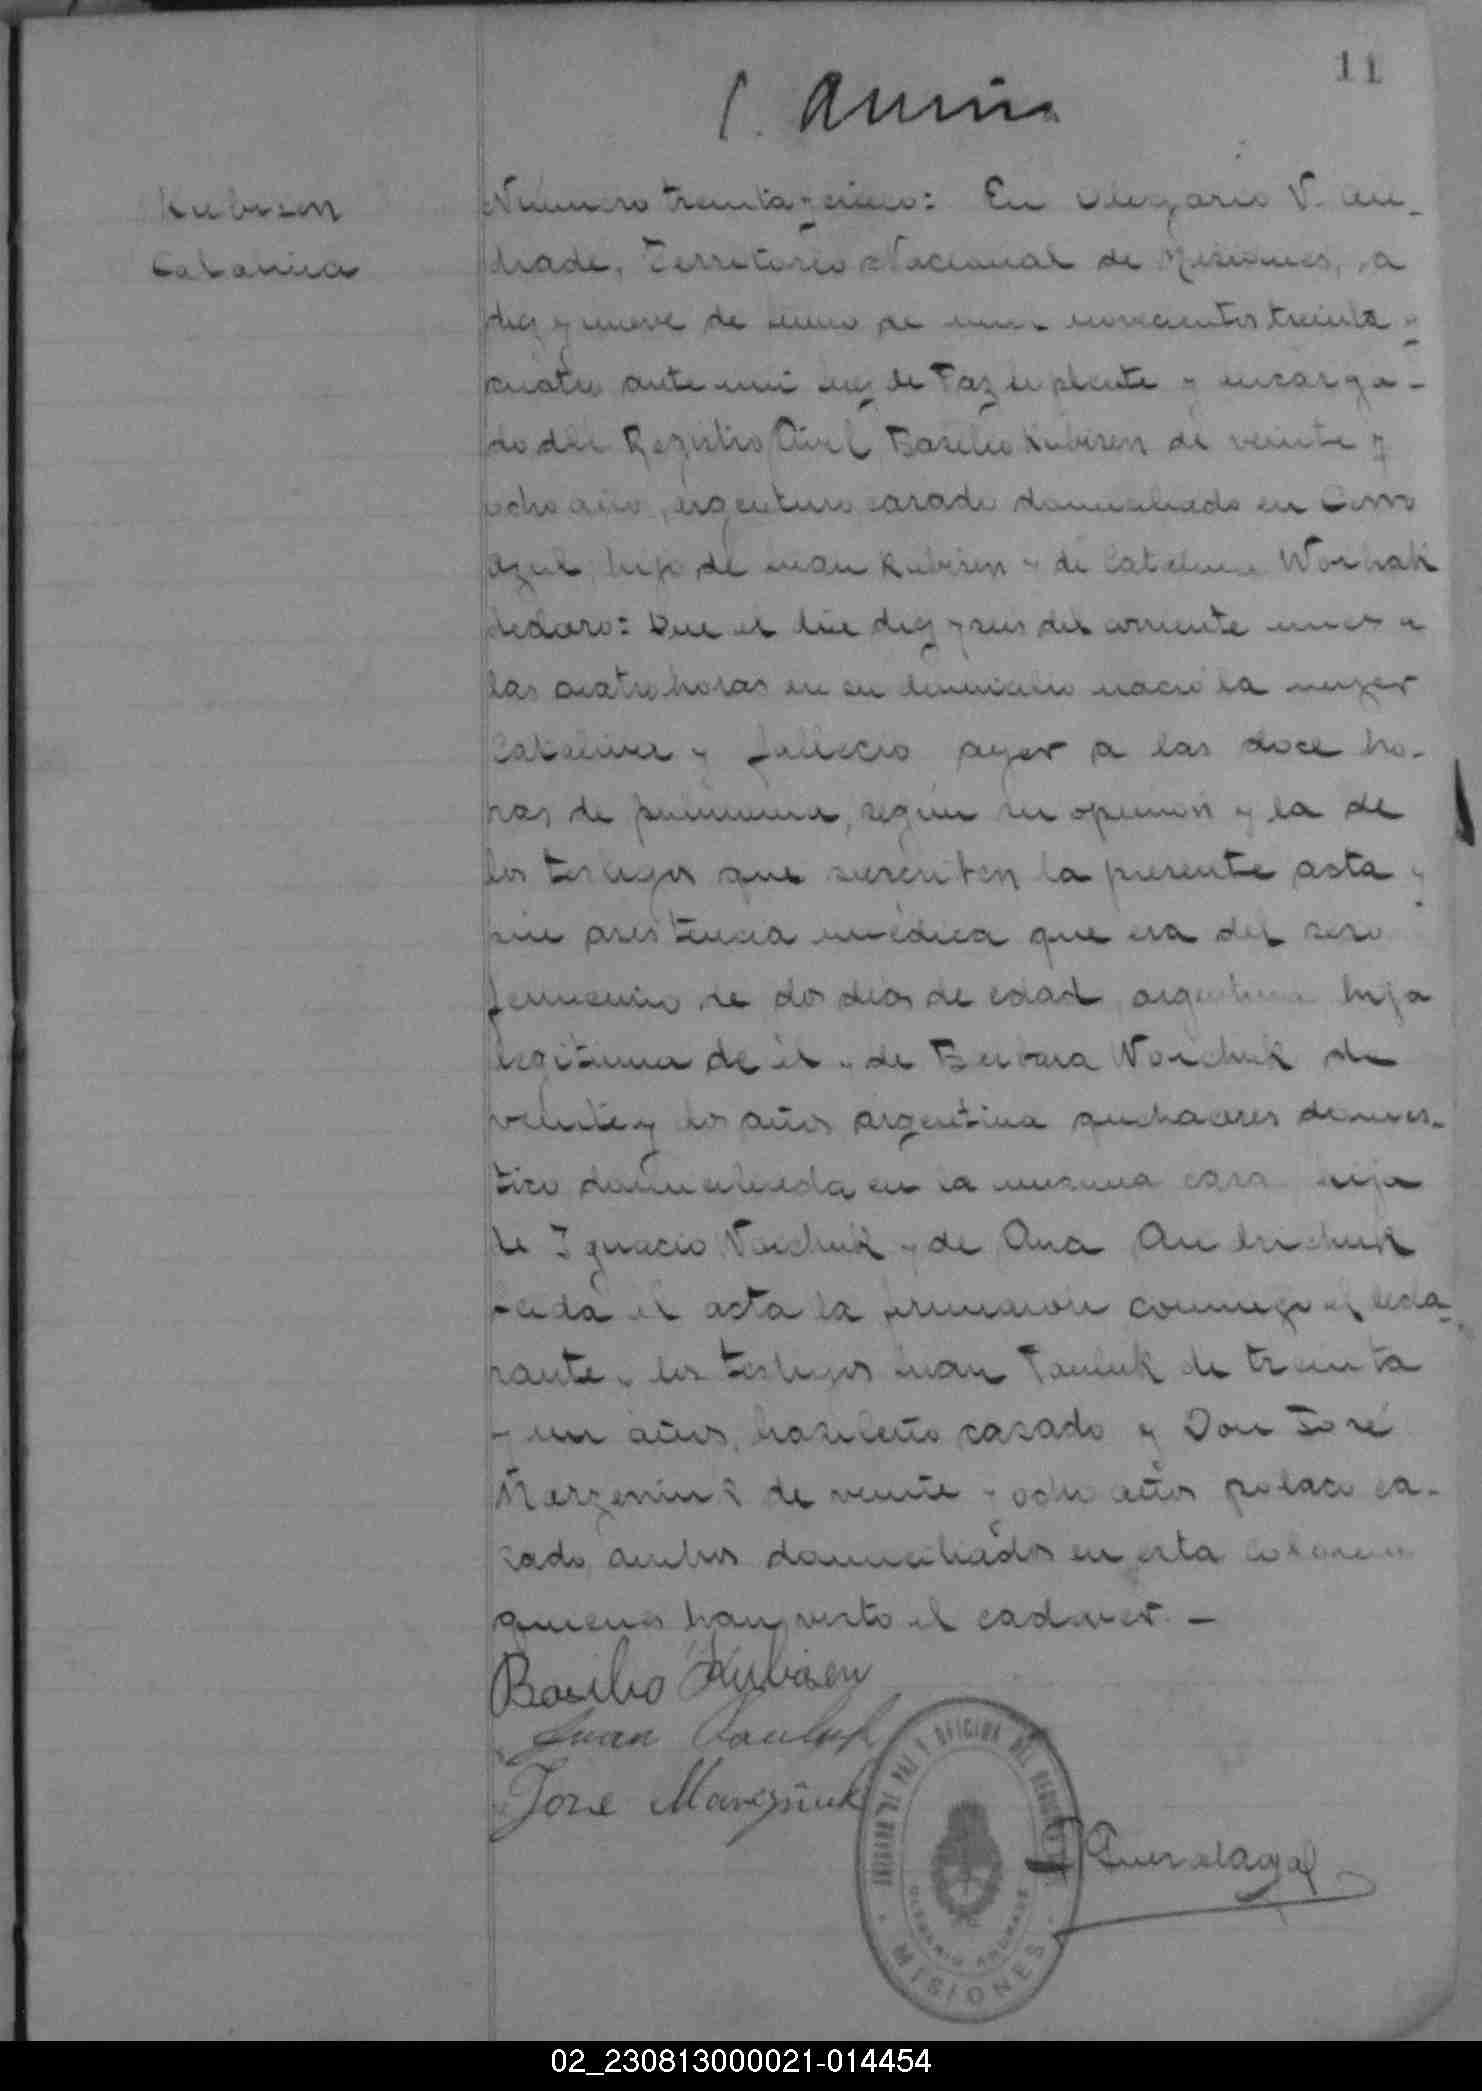 11
Kubisen
Catalina
Número treinta y cinco: En Olegario V. An-
drade, Territorio Nacional de Misiones, a
diez y nueve de de mil novecientos treinta y
cuatro ante mi Juez de Paz suplente y encarga-
do del Registro Civil Basilio Kubisen de veinte y
ocho años, argentino casado domiciliado en Cerro
Azul, hijo de Juan Kubisen y de Catalina
declaro: Que el dia diez y seis del corriente mes a
las cuatro horas en su domicilio nació la mujer
Catalina y falleció ayer a las doce ho-
ras de , según su opinión y la de
los testigos que suscriben la presente acta y
sin asistencia médica que era del sexo
femenino de dos dias de edad, argentina hija
legitima de él y de Barbara Woichuk de
veinte y dos años argentina quehaceres domes-
tico domiciliada en la misma casa hija
de Ignacio Woichuk y de Ana
Leida el acta la firmaron conmigo el decla-
rante y los testigos Juan Pauluk de treinta
y un años, brasileño casado y Don José
de veinte y ocho años polaco ca-
sado, ambos domiciliados en esta colonia
quienes han visto el cadaver. —
Basilio Kubisen
Juan Pauluk
Jose
JUZGADO DE PAZ Y OFICINA DEL REGISTRO
OLEGARIO ANDRADE
MISIONES
02_230813000021-014454